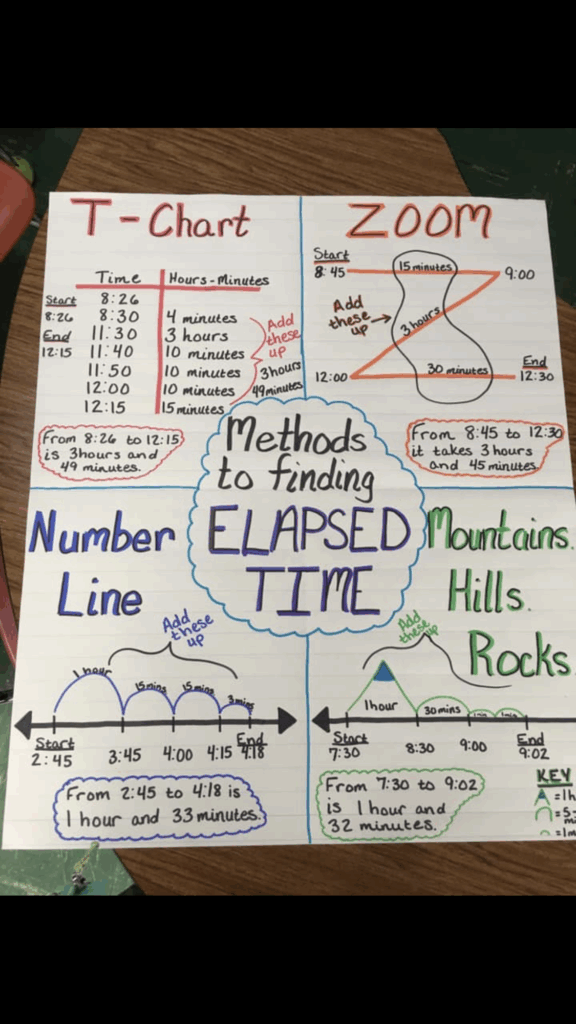 T-Chart
Time Hours-Minutes
Start 8:26
8:26 8:30 4 minutes
End 11:30 3 hours
12:15 11:40 10 minutes
11:50 10 minutes
12:00 10 minutes
12:15 15 minutes
Add
these
up
3hours
49minutes
From 8:26 to 12:15
is 3hours and
49 minutes.
ZOOM
Start
8:45 15 minutes 9:00
Add
these
up
3 hours
12:00 30 minutes End
12:30
From 8:45 to 12:30
it takes 3 hours
and 45 minutes
Methods
to finding
ELAPSED
TIME
Number
Line
Add
these
up
1 hour 15 mins 15 mins 3 mins
Start End
2:45 3:45 4:00 4:15 4:18
From 2:45 to 4:18 is
1 hour and 33 minutes.
Mountains.
Hills.
Rocks
Add
these up
1hour 30 mins 1min 1min
Start End
7:30 8:30 9:00 9:02
From 7:30 to 9:02
is 1 hour and
32 minutes.
KEY
=1h
=5-
mi
=1m